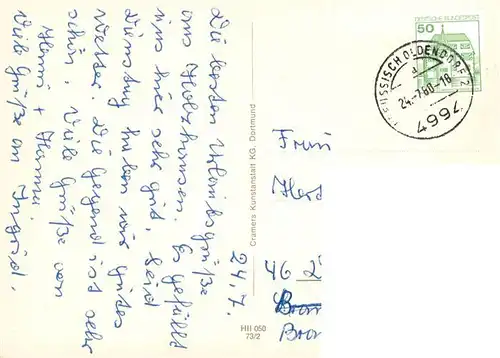 Die besten Urlaubsgrüße
aus Holzhausen. Es gefällt
uns hier sehr gut. Seid
Dienstag haben wir gutes
Wetter. Die Gegend ist sehr
schön. Viele Grüße von
Hanni + Hannu
Viele Grüße an Ingrid.
24.7.
Cramers Kunstanstalt KG. Dortmund
HII 050
73/2
DEUTSCHE BUNDESPOST
50
PREUSSISCH OLDENDORF 2
a
24.-7.80-18
4667
Frau
46